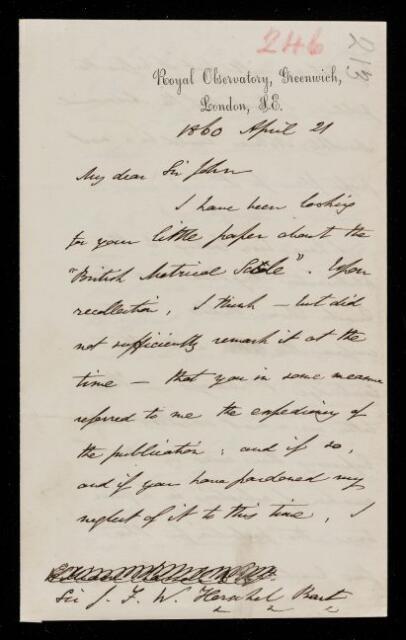 246
213
Royal Observatory, Greenwich,
London, S.E.
1860 April 21
My dear Sir John
I have been looking
for your little paper about the
"British Metrical Scale". Upon
recollection, I think – but did
not sufficiently remark it at the
time – that you in some measure
referred to me the expediency of
the publication; and if so,
and if you have pardoned my
neglect of it to this time, I
Sir J. F. W. Herschel Bart